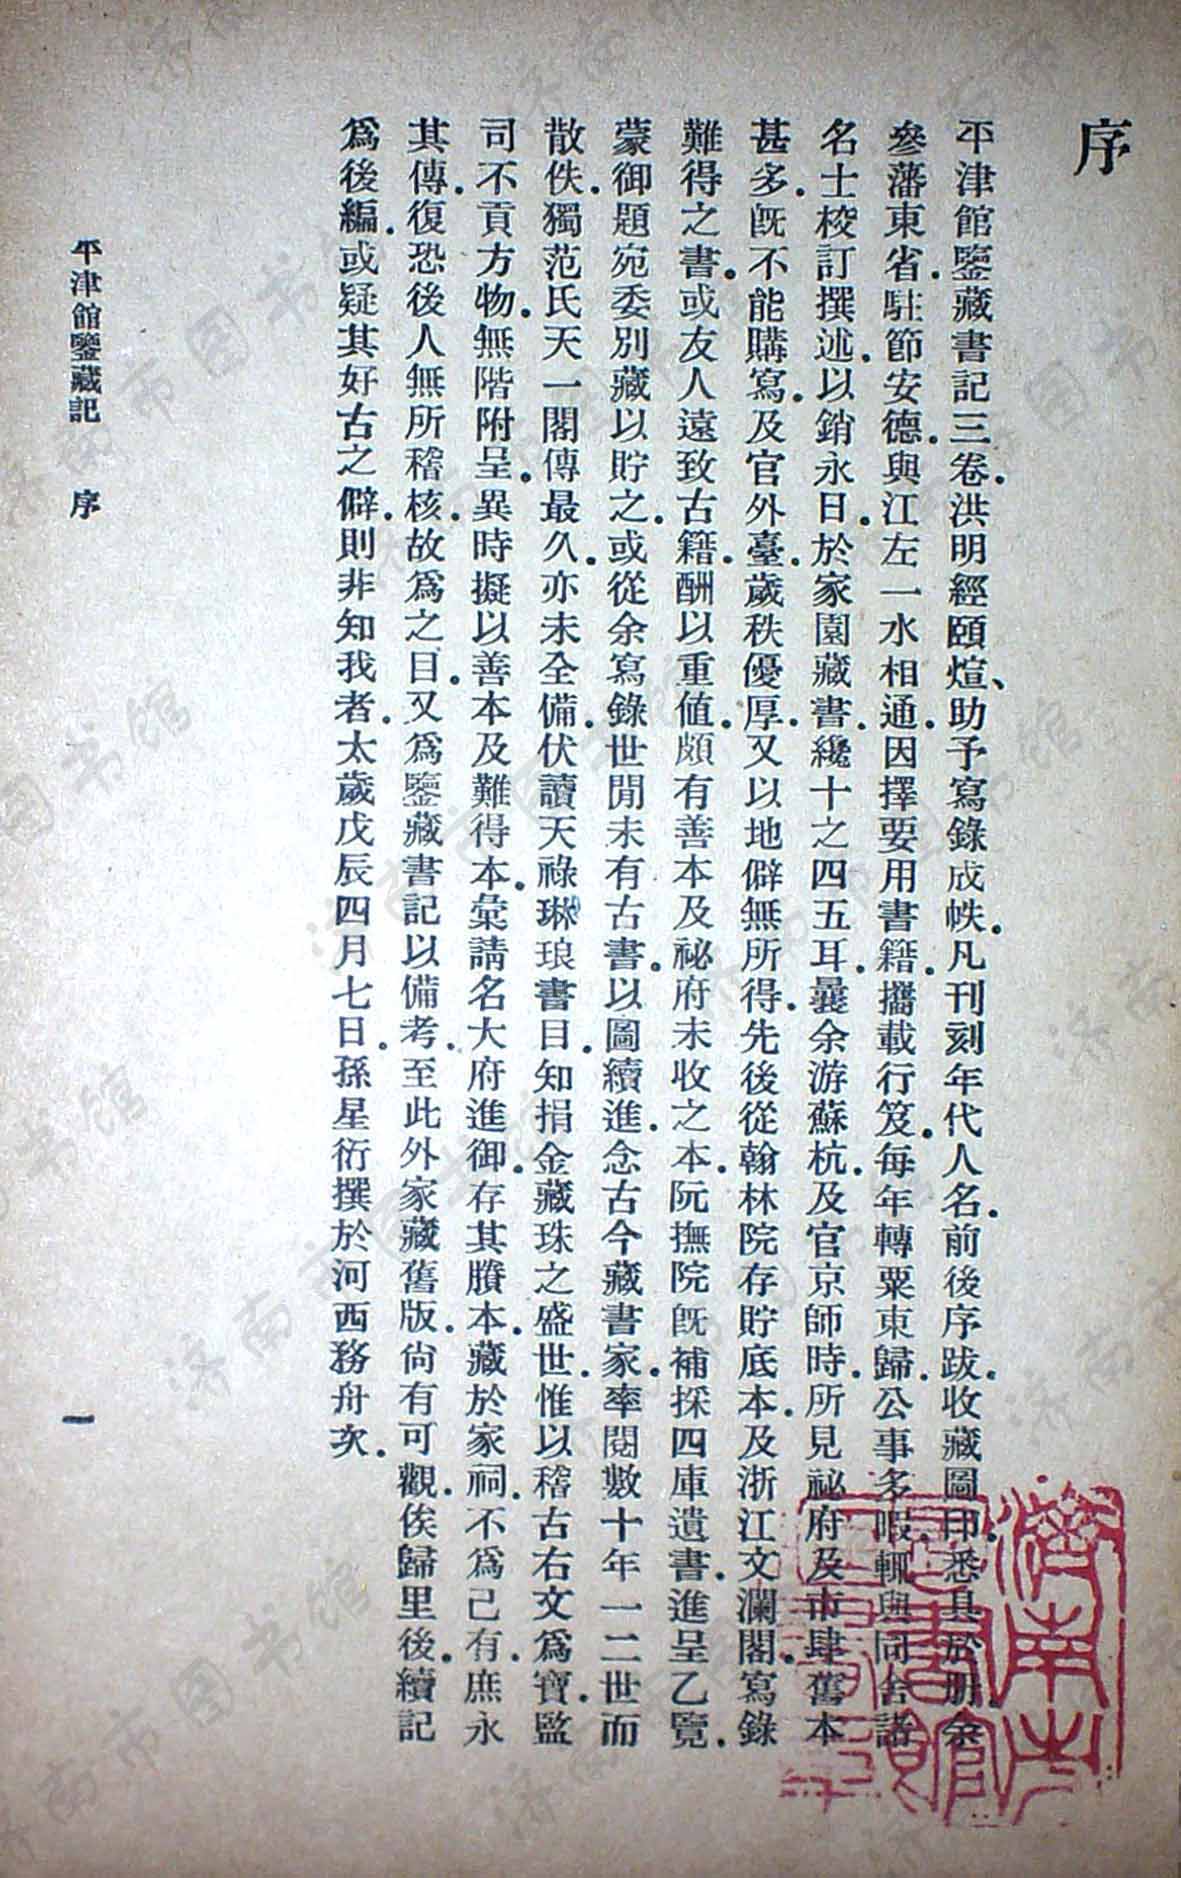 序
平津館鑒藏書記三卷．洪明經頤煊、助予寫錄成帙．凡刊刻年代人名．前後序跋．收藏圖印．悉具於册．余
參藩東省．駐節安德．與江左一水相通．因擇要用書籍．攜載行笈．每年轉粟東歸．公事多暇．輒與同舍諸
名士校訂撰述．以銷永日．於家園藏書．纔十之四五耳．曩余游蘇杭．及官京師時．所見祕府及市肆舊本
甚多．旣不能購寫．及官外臺．歲秩優厚．又以地僻無所得．先後從翰林院存貯底本．及浙江文瀾閣．寫錄
難得之書．或友人遠致古籍．酬以重値．頗有善本及祕府未收之本．阮撫院旣補採四庫遺書．進呈乙覽．
蒙御題宛委別藏以貯之．或從余寫錄世閒未有古書．以圖續進．念古今藏書家．率閱數十年一二世而
散佚．獨范氏天一閣傳最久．亦未全備．伏讀天祿琳琅書目．知捐金藏珠之盛世．惟以稽古右文爲寶．監
司不貢方物．無階附呈．異時擬以善本及難得本．彙請名大府進御．存其賸本．藏於家祠．不爲己有．庶永
其傳．復恐後人無所稽核．故爲之目．又爲鑒藏書記以備考．至此外家藏舊版．尙有可觀．俟歸里後．續記
爲後編．或疑其好古之僻．則非知我者．太歲戊辰四月七日．孫星衍撰於河西務舟次．
平津館鑒藏記　序
一
濟南市
圖書館